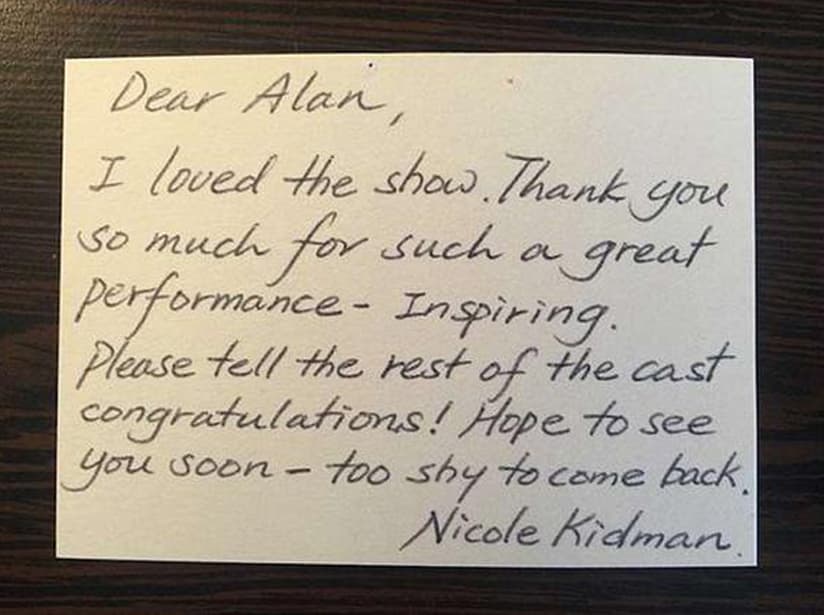 Dear Alan,
I loved the show. Thank you
so much for such a great
performance - Inspiring.
Please tell the rest of the cast
congratulations! Hope to see
you soon - too shy to come back.
Nicole Kidman.